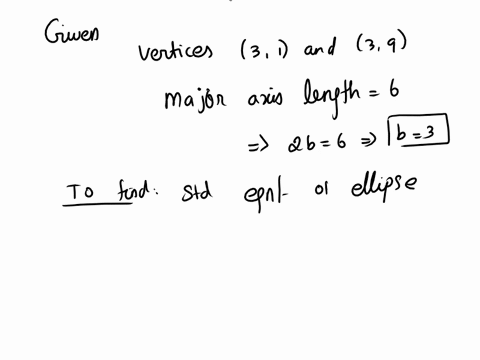 Given
vertices (3, 1) and (3, 9)
major axis length = 6
=> 2b = 6 => b = 3
To find: std eqn of ellipse